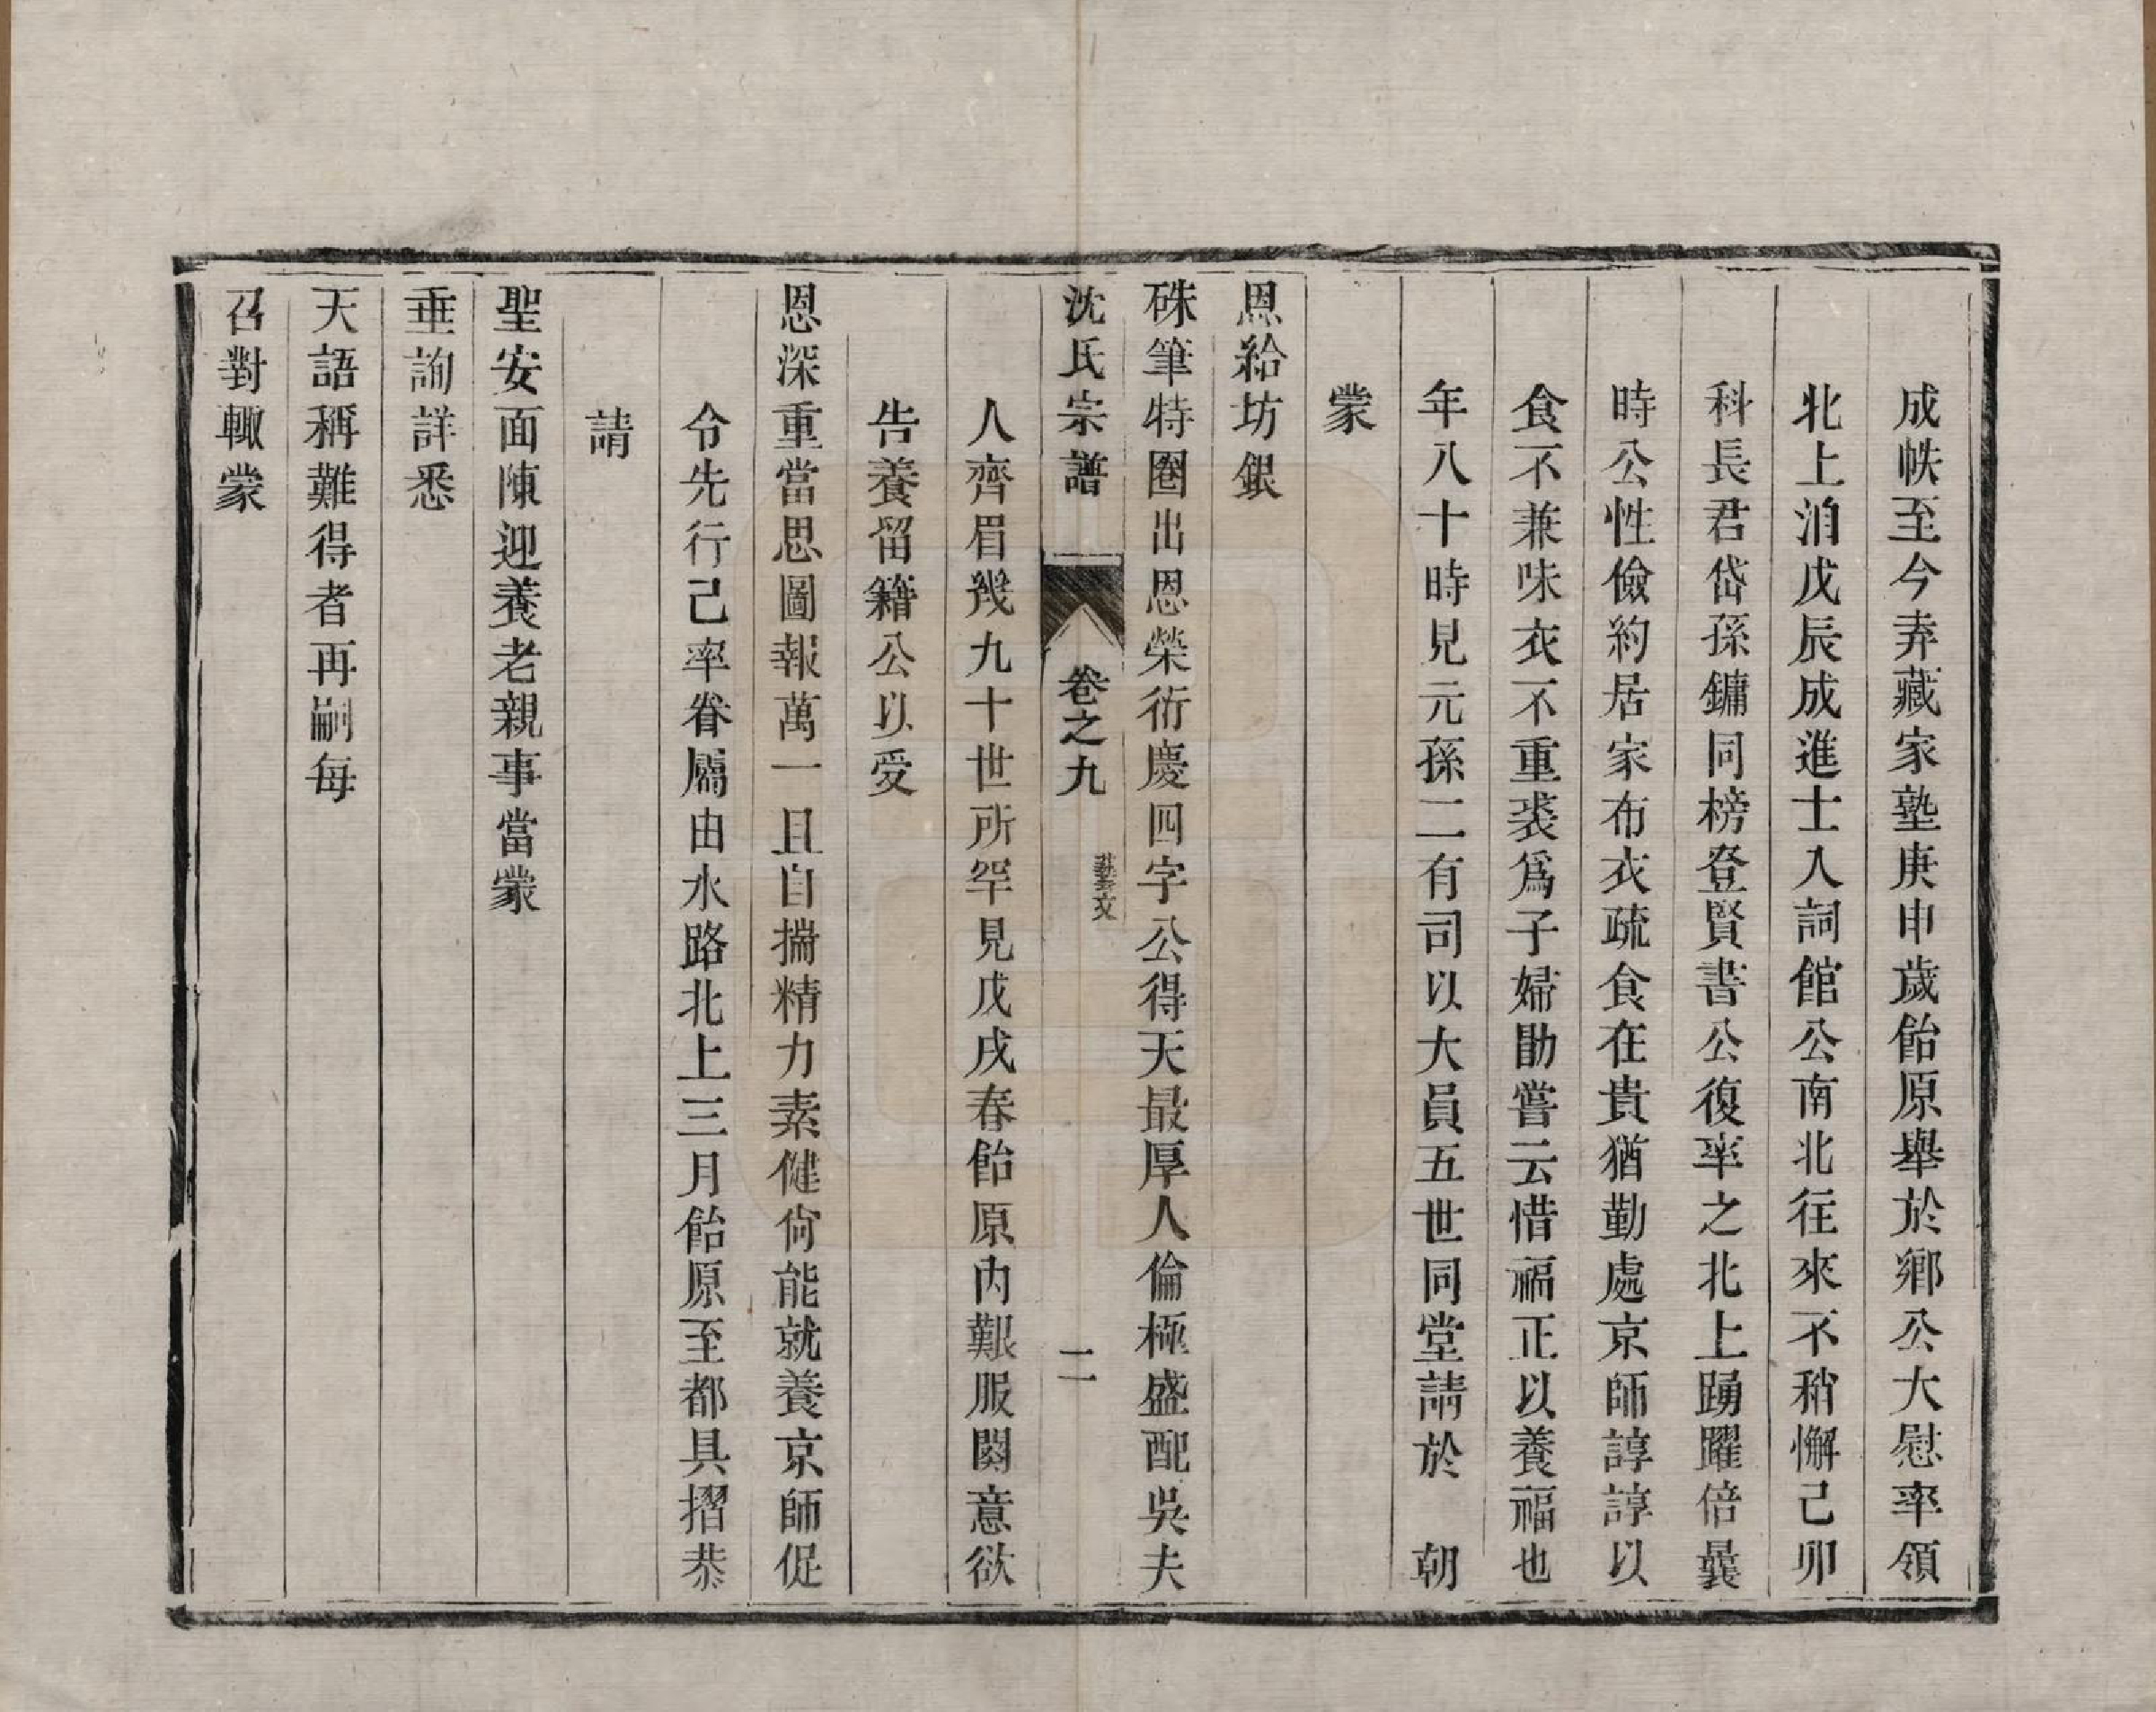 成帙至今弆藏家塾庚申歲飴原舉於鄉公大慰率領
北上洎戊辰成進士入詞館公南北往來不稍懈己卯
科長君岱孫鏞同榜登賢書公復率之北上踴躍倍曩
時公性儉約居家布衣疏食在貴猶勤處京師諄諄以
食不兼味衣不重裘爲子婦勖嘗云惜福正以養福也
年八十時見元孫二有司以大員五世同堂請於　朝
蒙
恩給坊銀
硃筆特圈出恩榮衍慶四字公得天最厚人倫極盛配吳夫
沈氏宗譜　卷之九　藝文　二
人齊眉幾九十世所罕見戊戌春飴原內艱服闋意欲
告養留籍公以受
恩深重當思圖報萬一且自揣精力素健尙能就養京師促
令先行己率眷屬由水路北上三月飴原至都具摺恭
請
聖安面陳迎養老親事當蒙
垂詢詳悉
天語稱難得者再嗣每
召對輒蒙